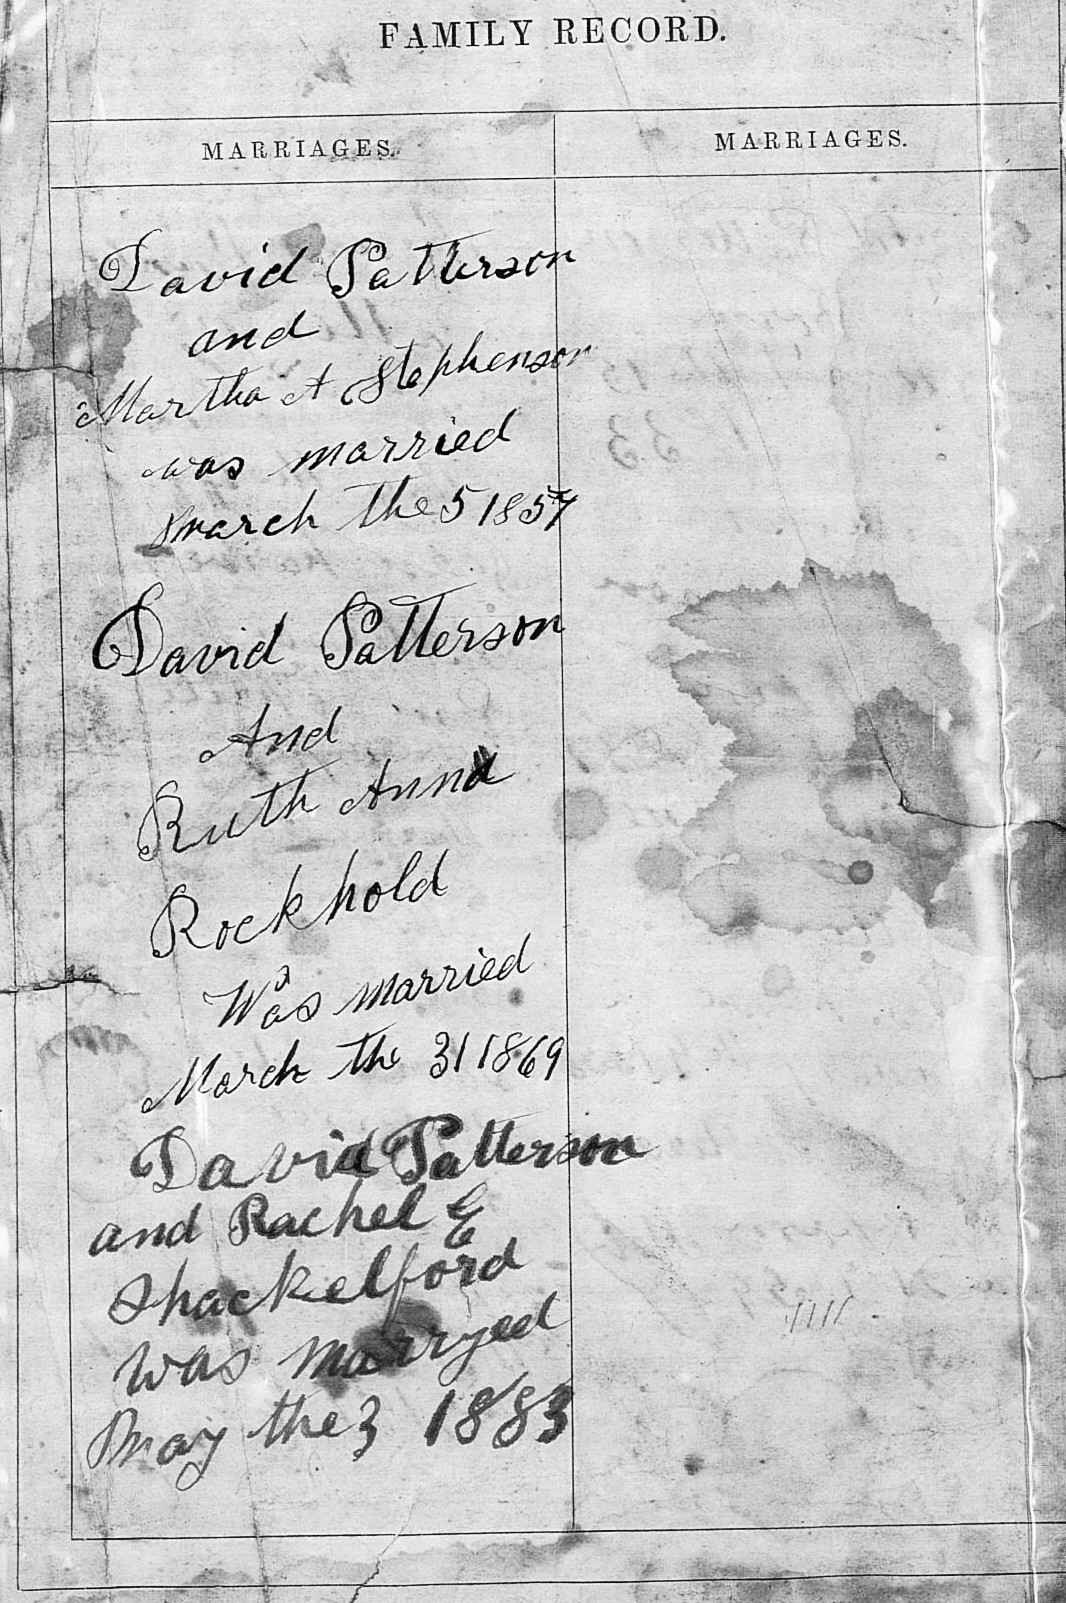 FAMILY RECORD.
MARRIAGES.
MARRIAGES.
David Patterson
and
Martha A Stephenson
was married
March the 5 1857
David Patterson
And
Ruth Anna
Rockhold
Was married
March the 31 1869
David Patterson
and Rachel E
Shackelford
was marryed
May the 3 1883